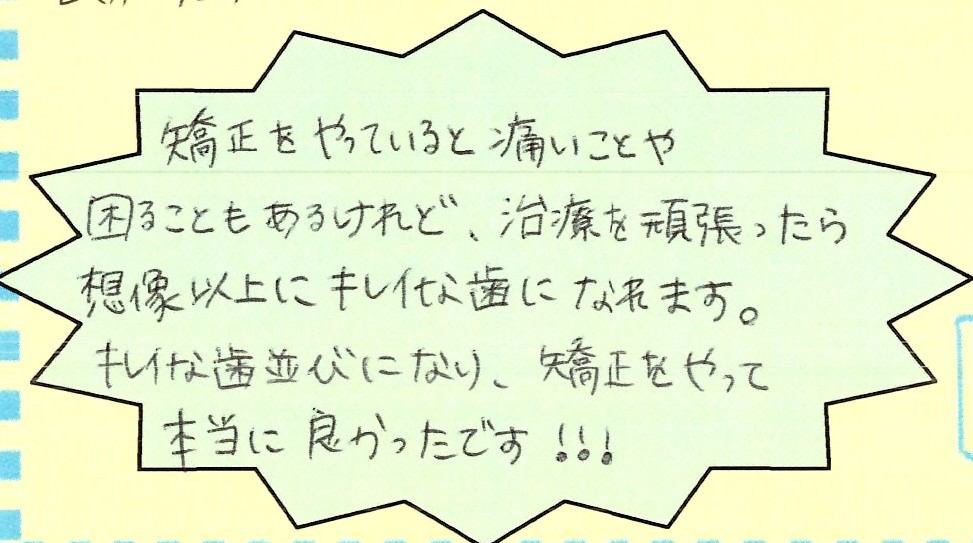 矯正をやっていると痛いことや
困ることもあるけれど、治療を頑張ったら
想像以上にキレイな歯になれます。
キレイな歯並びになり、矯正をやって
本当に良かったです!!!